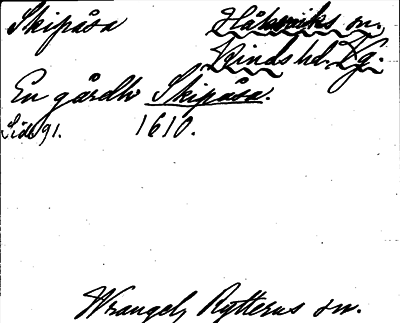 Skipåsa Håksviks sn.
Kinds hd. Vg.
En gårdh Skipåsa.
Sid. 91. 1610.
Wrangel, Rytterns sn.